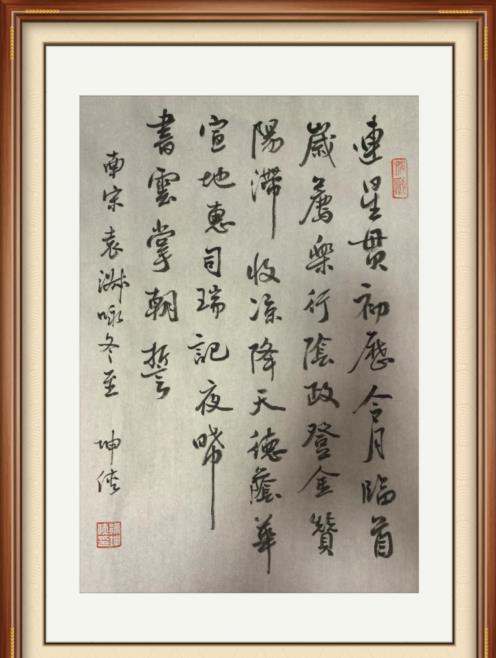 連星貫初歷令月臨首
歲薦樂行陰政登金贊
陽滯收涼降天德蔭華
宣地惠司瑞記夜晞
書雲掌朝誓
南宋袁淑咏冬至 坤